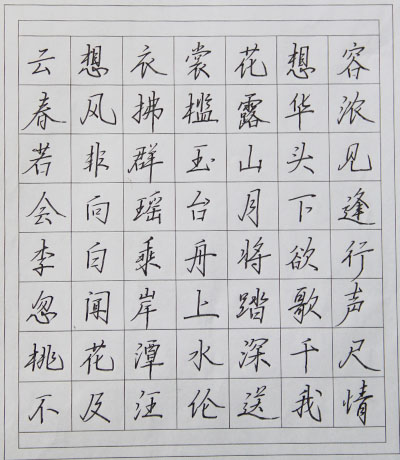 云想衣裳花想容
春风拂槛露华浓
若非群玉山头见
会向瑶台月下逢
李白乘舟将欲行
忽闻岸上踏歌声
桃花潭水深千尺
不及汪伦送我情